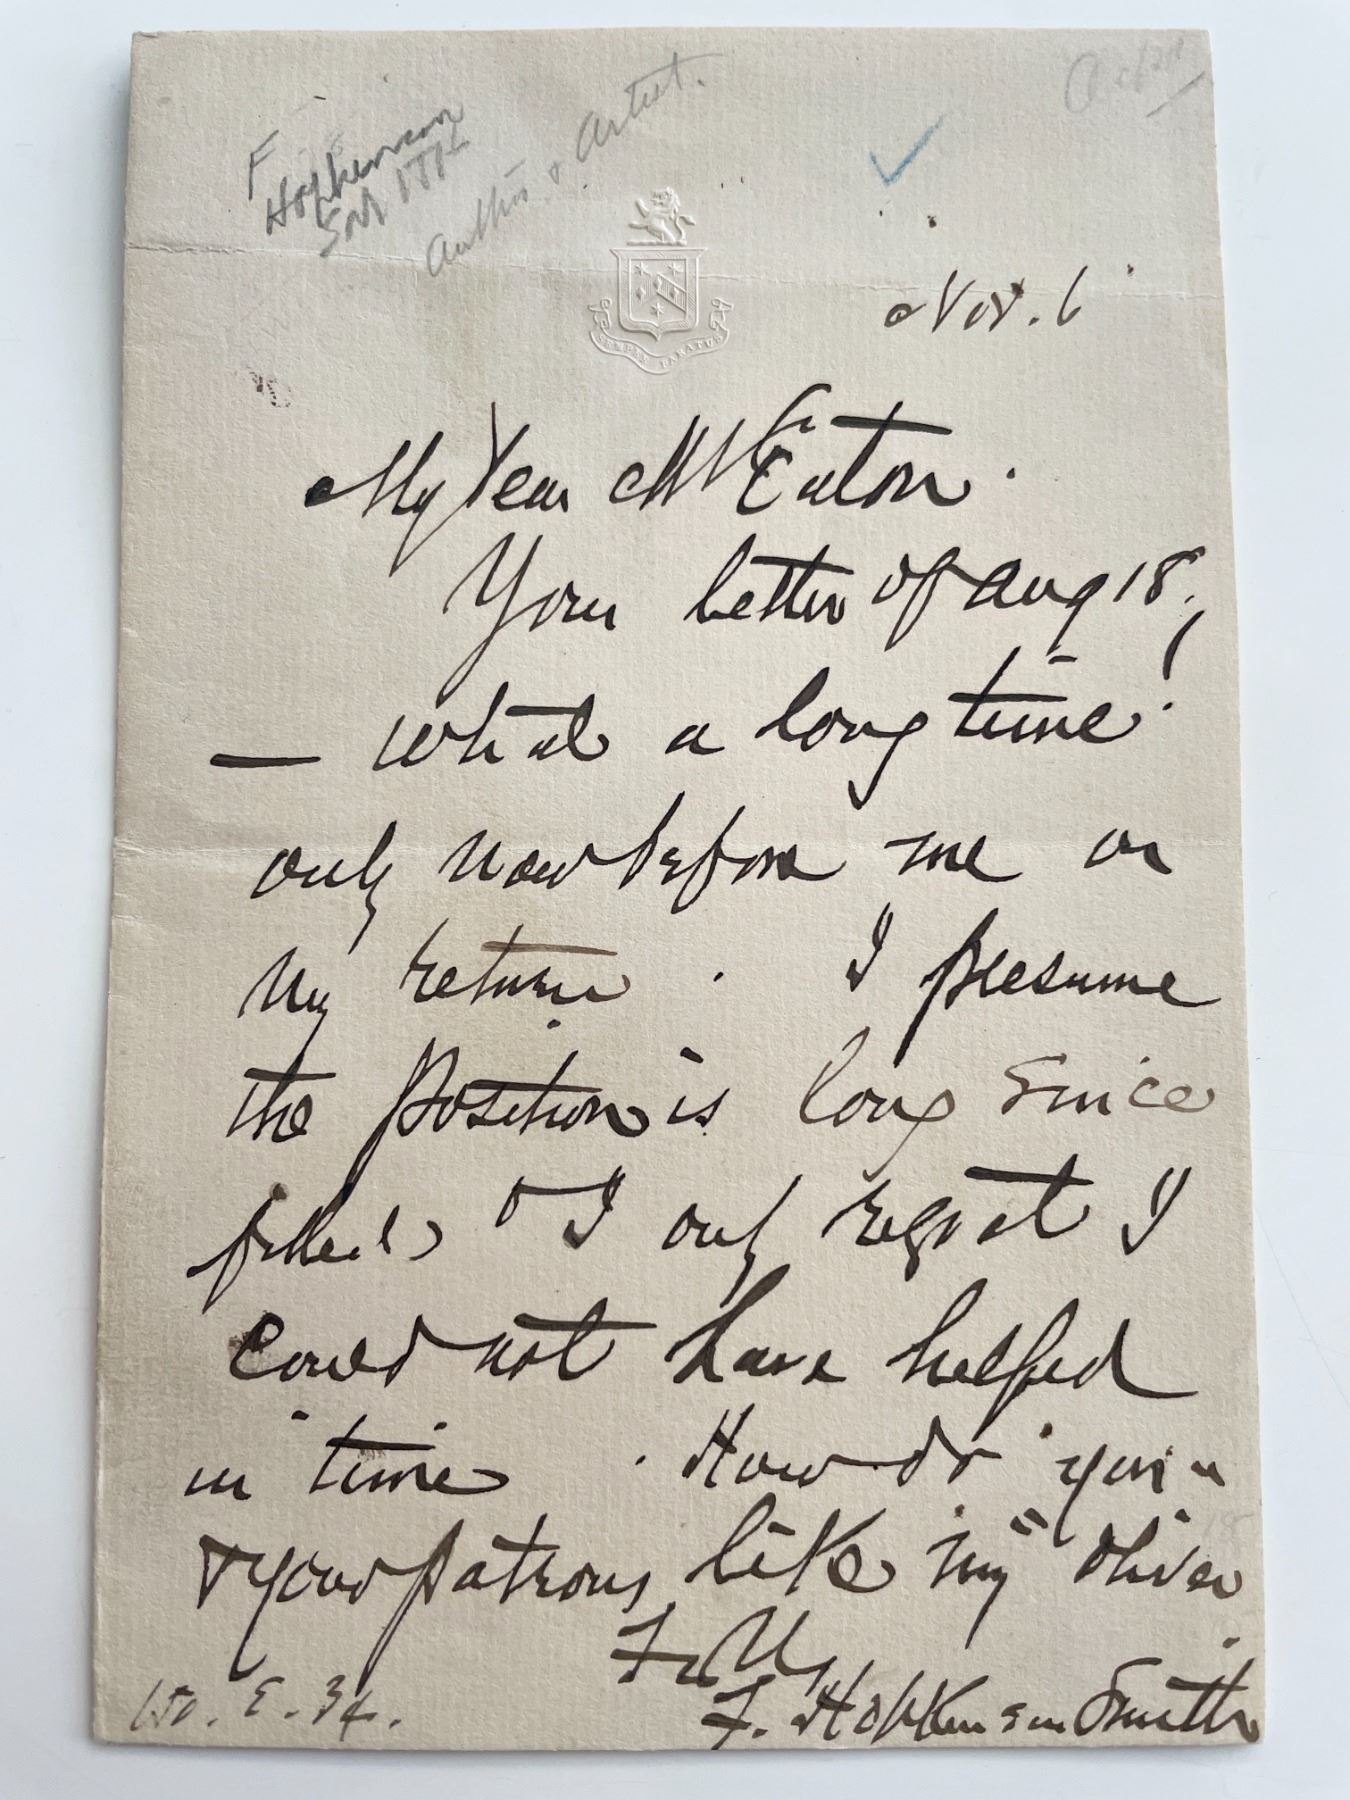 F
Hopkinson
Smith
Author & Artist.
SEMPER PARATUS
Nov. 6
My Dear Mr Eaton.
Your letter of Aug 18,
— what a long time!
only now before me on
my return. I presume
the position is long since
filled & I only regret I
could not have helped
in time. How do you
& your patrons like my "Oliver
F. Hopkinson Smith
150. E. 34.